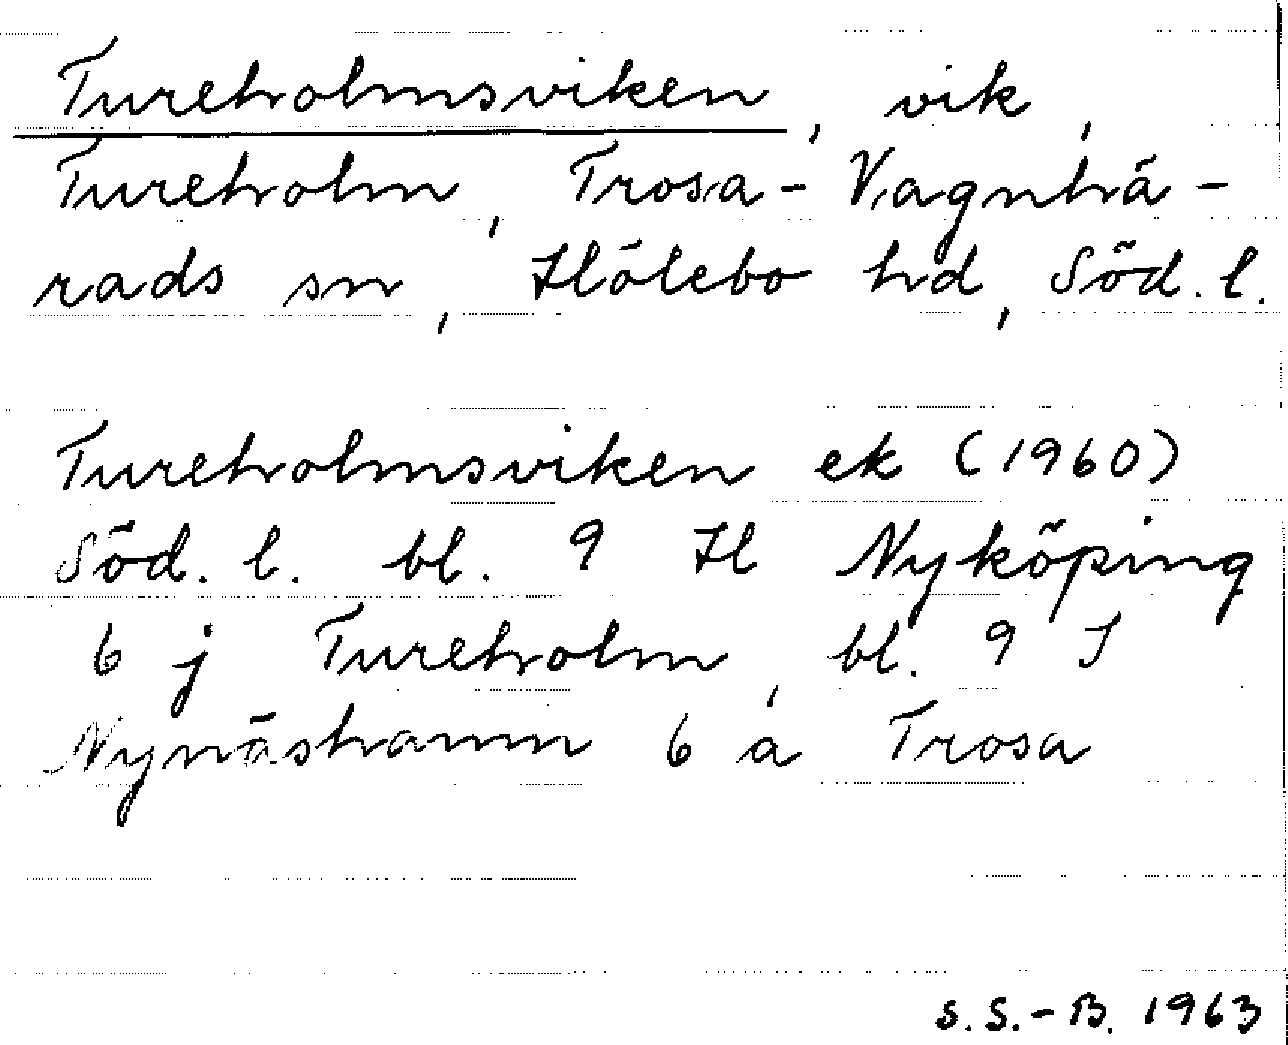 Tureholmsviken, vik,
Tureholm, Trosa-Vagnhä-
rads sn, Hölebo hd, Söd. l.
Tureholmsviken ek (1960)
Söd. l. bl. 9 H Nyköping
6 j Tureholm, bl. 9 I
Nynäshamn 6 a Trosa
S. S.-B. 1963